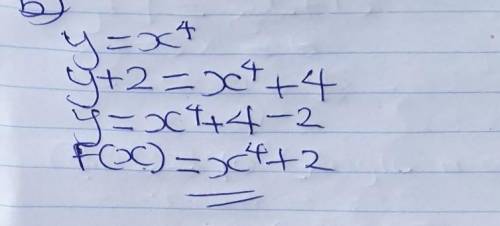 b)
y = x⁴
y+2 = x⁴ + 4
y = x⁴+4-2
F(x) = x⁴+2